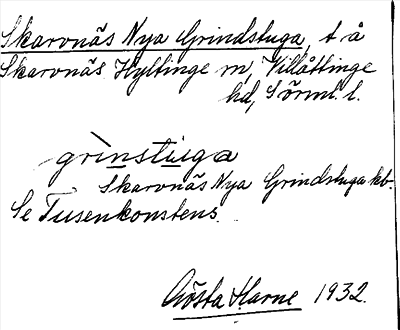 Skarvnäs Nya Grindstuga, t å
Skarvnäs Hyltinge sn, Villåttinge
hd, Sörml. l.
grìnstùga
Skarvnäs Nya Grindstuga kb.
Se Tusenkonstens.
Gösta Harne 1932.